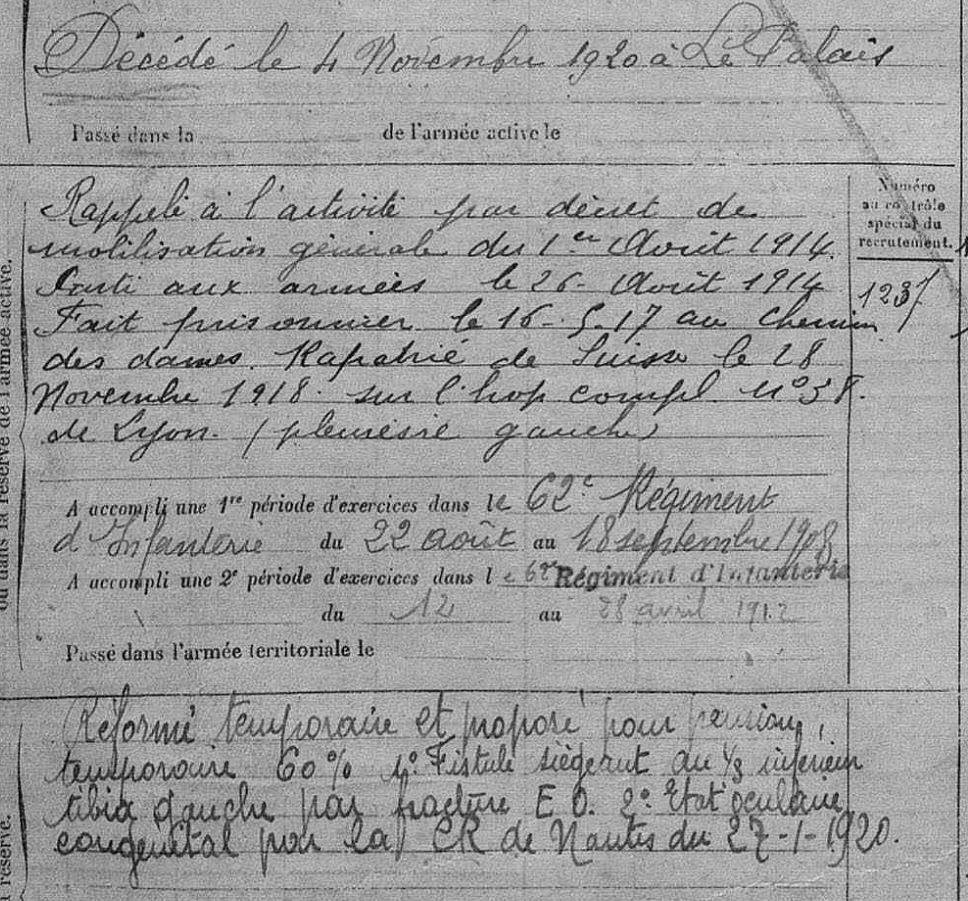 Décédé le 4 Novembre 1920 à Le Palais
Passé dans la de l'armée active le
Numéro
au contrôle
spécial du
recrutement.
1237
Rappelé à l'activité par décret de
mobilisation générale du 1er Août 1914.
Parti aux armées le 26 - Août 1914
Fait prisonnier le 16-5-17 au Chemin
des dames. Rapatrié de Suisse le 28
Novembre 1918. sur l'hop compl. n° 38.
de Lyon. (pleurésie gauche)
A accompli une 1re période d'exercices dans le 62e Régiment
d'Infanterie du 22 août au 18 septembre 1908
A accompli une 2e période d'exercices dans le 62e Régiment d'Infanterie
du 12 au 28 avril 1912
Passé dans l'armée territoriale le
Réformé temporaire et proposé pour pension,
temporaire 60% 1° Fistule siégeant au 1/3 inférieur
tibia gauche par fracture E.O. 2° Etat oculaire
congénital par la CR de Nantes du 27-1-1920.
ou dans la réserve de l'armée active.
réserve.